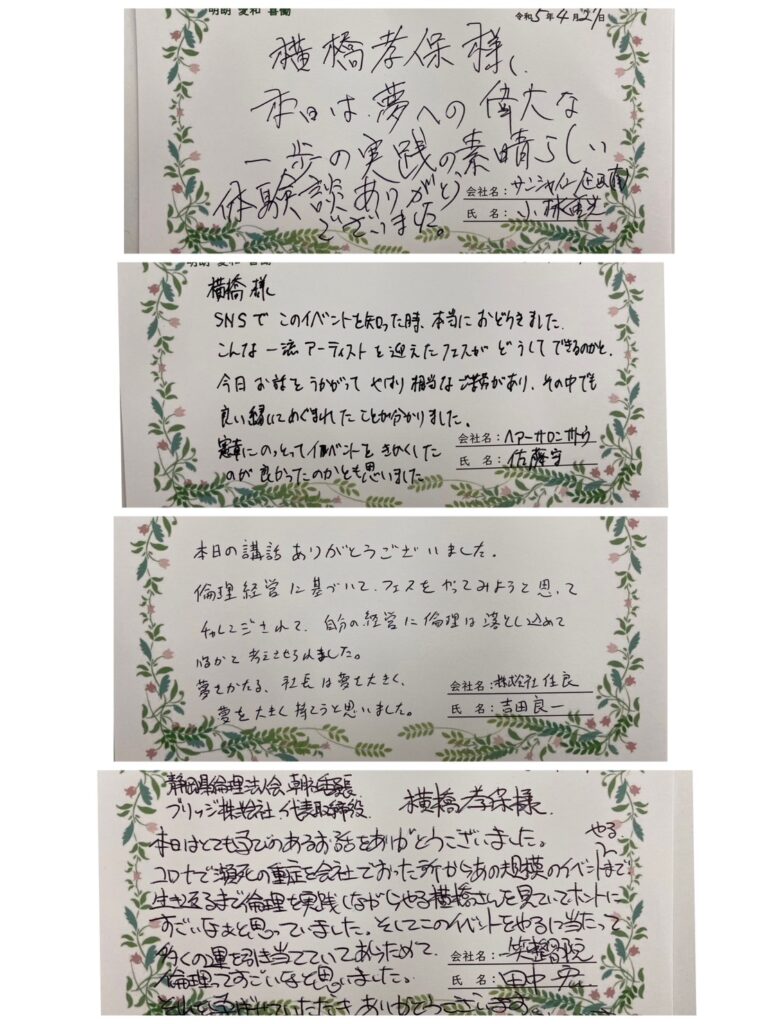 明朗 愛和 喜働
令和5年4月27日
横橋孝保様、
本日は夢への偉大な
一歩の実践の素晴らしい
体験談ありがとう
ございました。
会社名:サンシャイン
氏 名:小林
明朗 愛和 喜働
横橋様
SNSで このイベントを知った時、本当におどろきました。
こんな一流アーティストを迎えたフェスが どうしてできるのかと、
今日お話をうかがって やはり相当なご苦労があり、その中でも
良い縁にめぐまれたことが分かりました。
にのっとってイベントをきかくした
のが良かったのかとも思いました
会社名:ヘアーサロンサトウ
氏 名:佐藤守
本日の講話ありがとうございました。
倫理経営に基づいて、フェスをやってみようと思って
チャレンジされて、自分の経営に倫理は落とし込めて
いるかと考えさせられました。
夢をかたる、社長は夢を大きく、
夢を大きく持とうと思いました。
会社名:株式会社住良
氏 名:吉田良一
静岡県倫理法人会 朝礼委員長
ブリッジ株式会社 代表取締役 横橋孝保様
本日はとても学びのあるお話をありがとうございました。
コロナで瀕死の重症を会社でおった所からあの規模のイベントまでやる
生き返るまで倫理を実践しながらやる横橋さんを見ていてホントに
すごいなぁと思っていました。そしてこのイベントをやるに当たって
多くの運を引き当てていてあらためて、
倫理ってすごいなと思いました。
会社名:笑整骨院
氏 名:田中
それを学ばせていただき ありがとうございます。